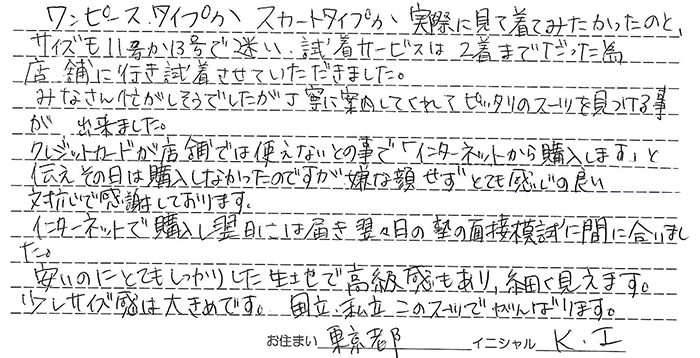 ワンピースタイプか スカートタイプか 実際に見て着てみたかったのと、
サイズも11号か13号で迷い、試着サービスは2着までだった為
店舗に行き試着させていただきました。
みなさん忙がしそうでしたが丁寧に案内してくれてピッタリのスーツを見つける事
が 出来ました。
クレジットカードが店舗では使えないとの事で「インターネットから購入します」と
伝えその日は購入しなかったのですが嫌な顔せずとても感じの良い
対抗心で感謝しております。
インターネットで購入し翌日には届き翌々日の塾の面接模試に間に合いまし
た。
安いのにとてもしっかりした生地で高級感もあり、細く見えます。
少しサイズ感は大きめです。 国立・私立このスーツでがんばります。
お住まい 東京都 イニシャル K.I